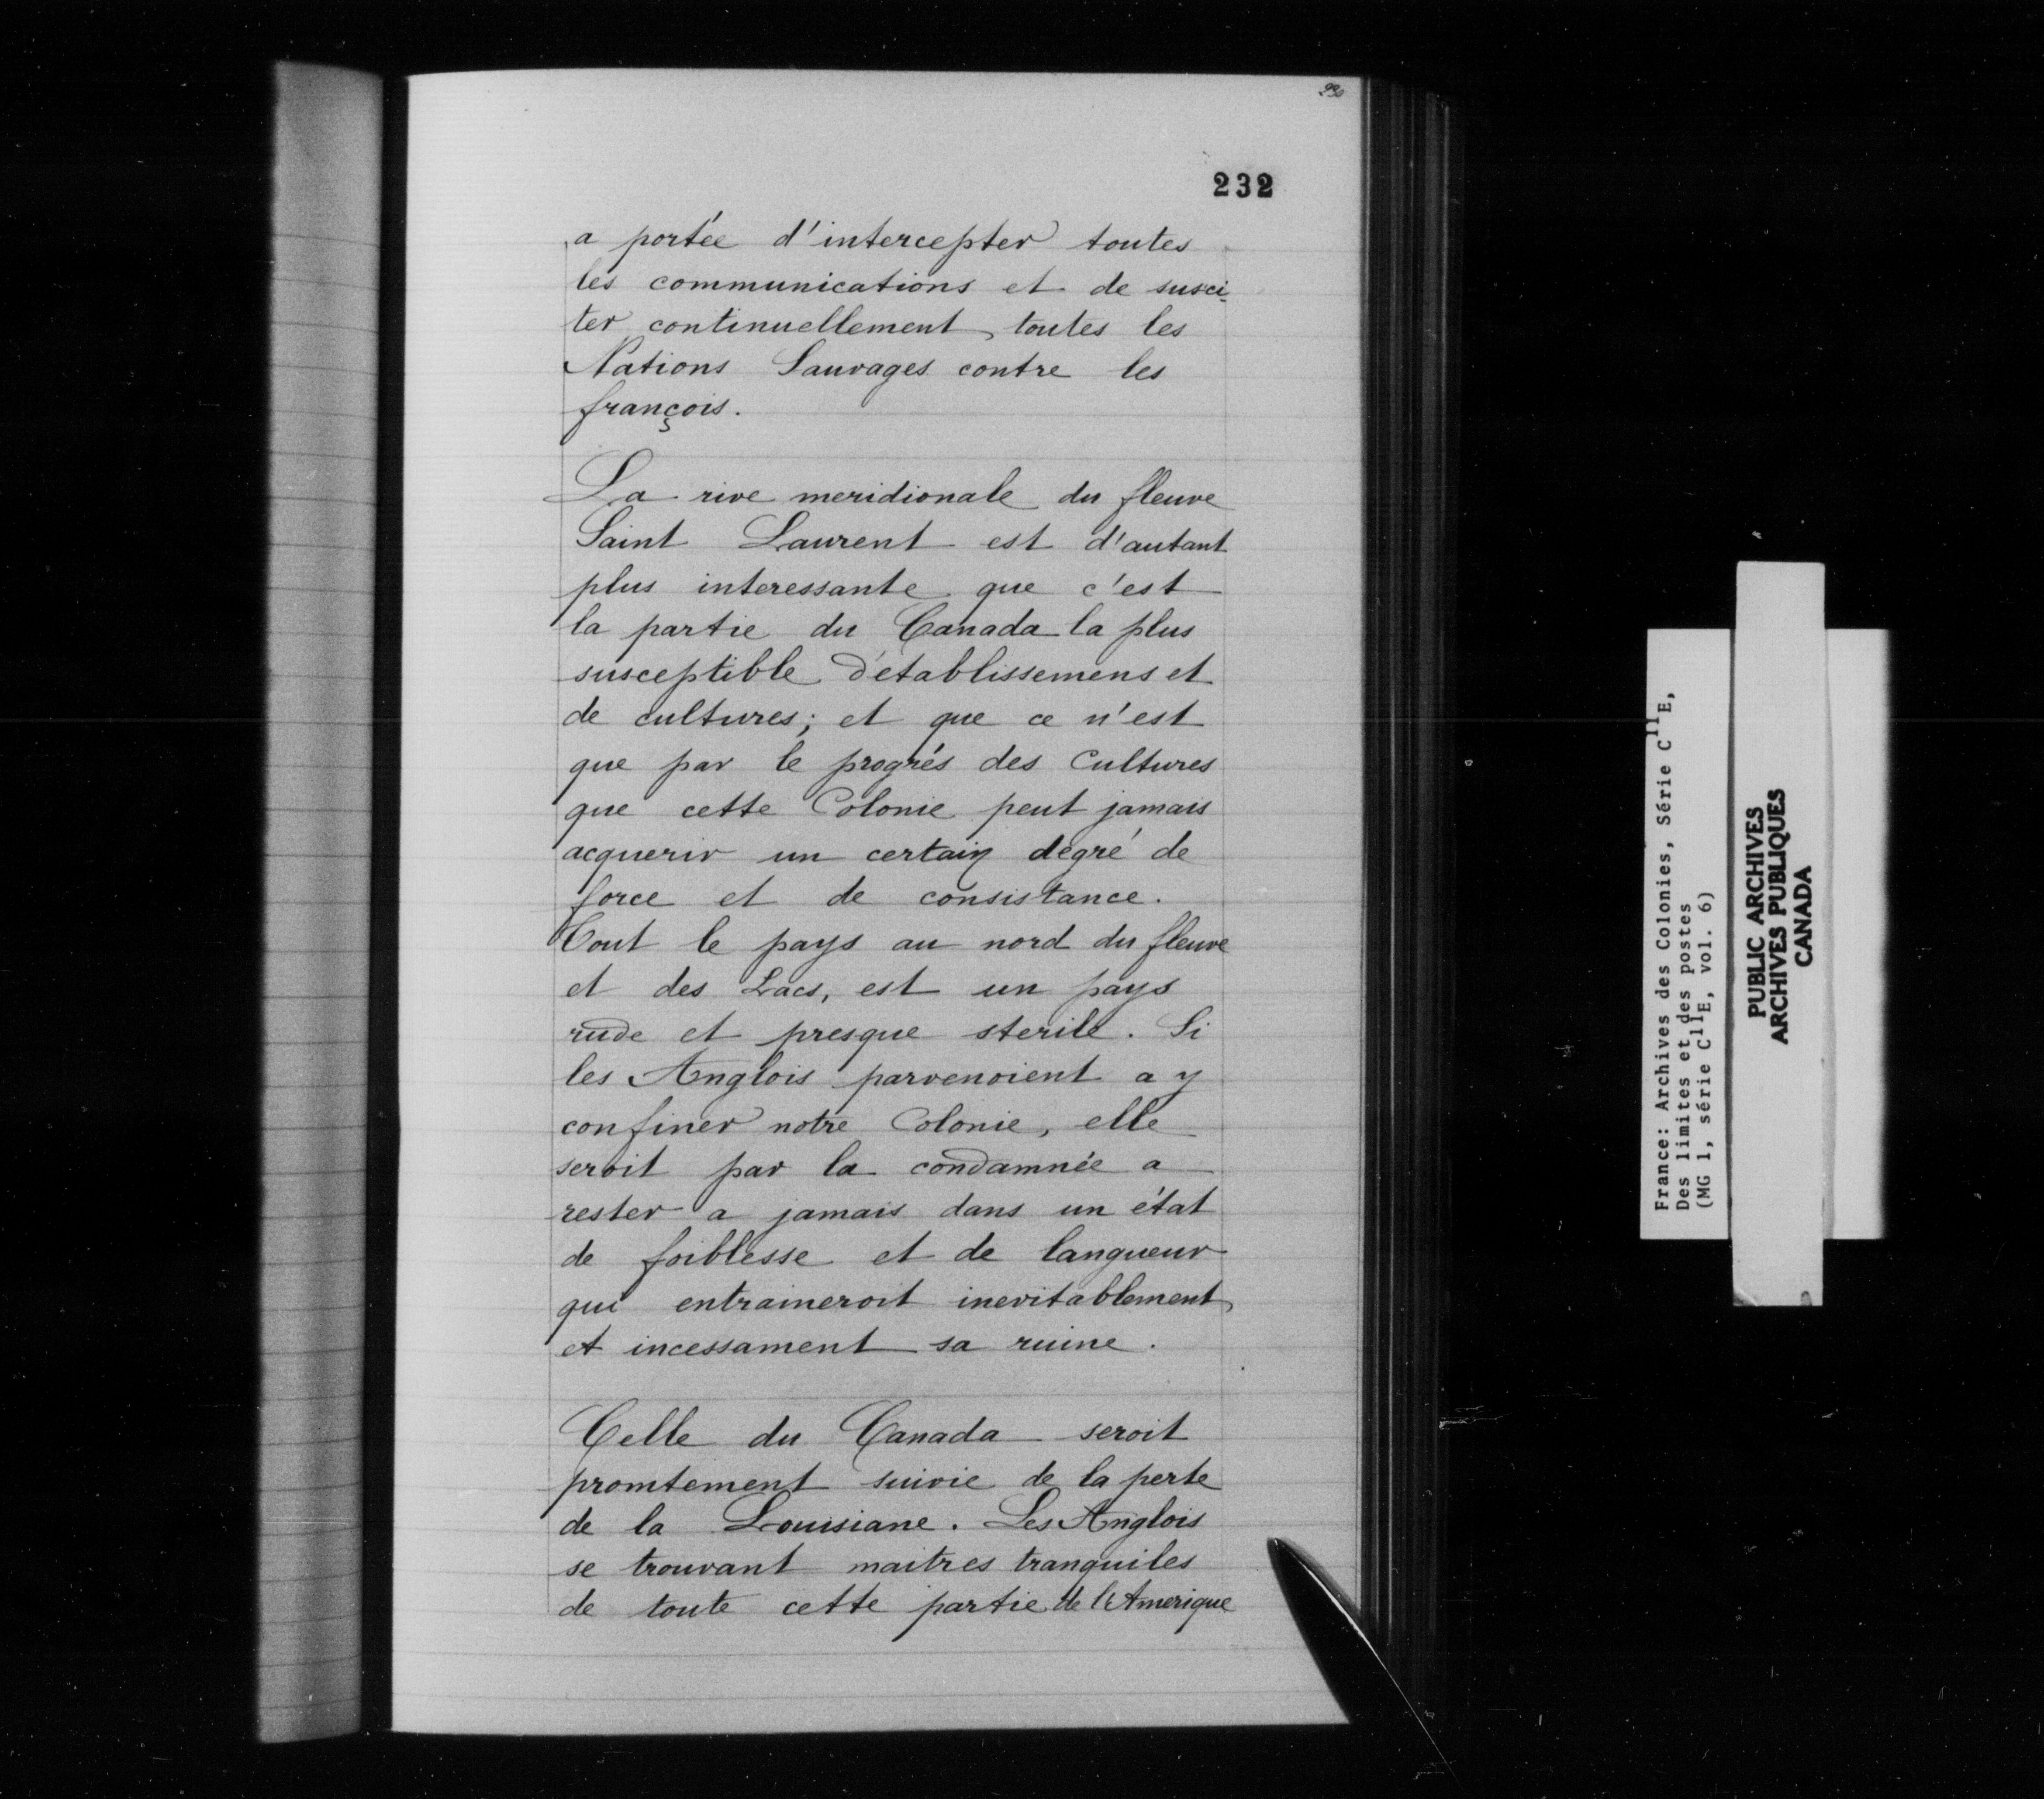 232
a portée d'intercepter toutes
les communications et de susci-
ter continuellement toutes les
Nations Sauvages contre les
françois.
La rive meridionale du fleuve
Saint Laurent est d'autant
plus interessante que c'est
la partie du Canada la plus
susceptible d'etablissemens et
de cultures; et que ce n'est
que par le progrés des Cultures
que cette Colonie peut jamais
acquerir un certain degré de
force et de consistance.
Tout le pays au nord du fleuve
et des Lacs, est un pays
rude et presque sterile. Si
les Anglois parvenoient a y
confiner notre Colonie, elle
seroit par la condamnée a
rester a jamais dans un état
de foiblesse et de langueur
qui entraineroit inevitablement
et incessament sa ruine.
Celle du Canada seroit
promtement suivie de la perte
de la Louisiane. Les Anglois
se trouvant maitres tranquiles
de toute cette partie de l'Amerique
France: Archives des Colonies, Série C11E,
Des limites et des postes
(MG 1, série C11E, vol. 6)
PUBLIC ARCHIVES
ARCHIVES PUBLIQUES
CANADA